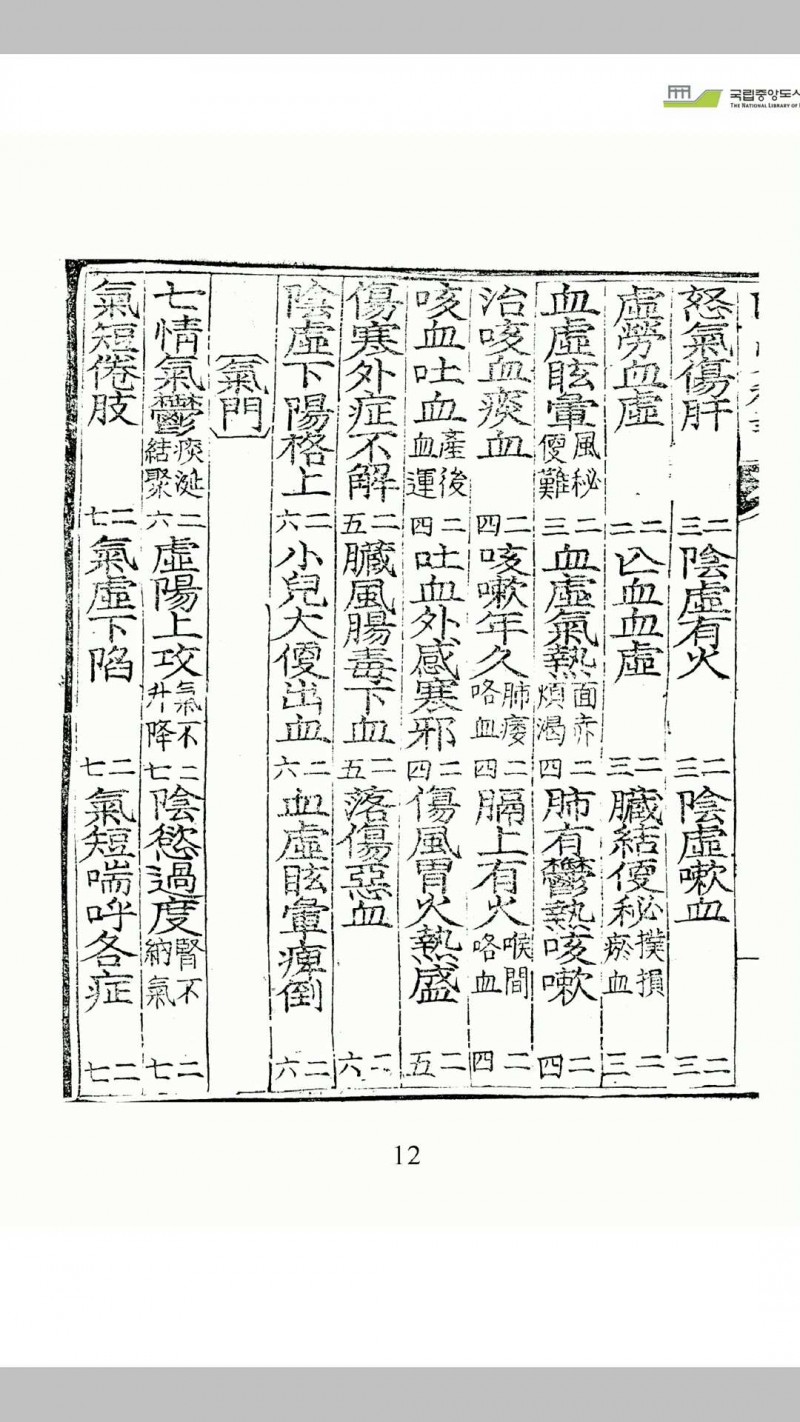 국립중앙도서
THE NATIONAL LIBRARY OF
怒氣傷肝 二三 陰虛有火 二三 陰虛嗽血 二三
虛勞血虛 二二 亾血血虛 二三 臟結便秘 撲損瘀血 二三
血虛眩暈 風秘便難 二三 血虛氣熱 面赤煩渴 二四 肺有鬱熱咳嗽 二四
治咳血痰血 二四 咳嗽年久 肺痿咯血 二四 膈上有火 喉間咯血 二四
咳血吐血 產後血運 二四 吐血外感寒邪 二四 傷風胃火熱盛 二五
傷寒外症不解 二五 臟風腸毒下血 二五 落傷惡血 二六
陰虛下陽格上 二六 小兒大便出血 二六 血虛眩暈痺倒 二六
氣門
七情氣鬱 痰涎結聚 二六 虛陽上攻 氣不升降 二七 陰慾過度 腎不納氣 二七
氣短倦肢 二七 氣虛下陷 二七 氣短喘呼各症 二七
12